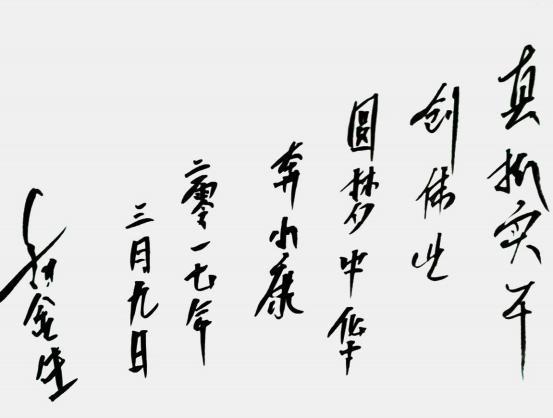 真抓实干
创伟业
圆梦中华
奔小康
二零一七年
三月九日
金生